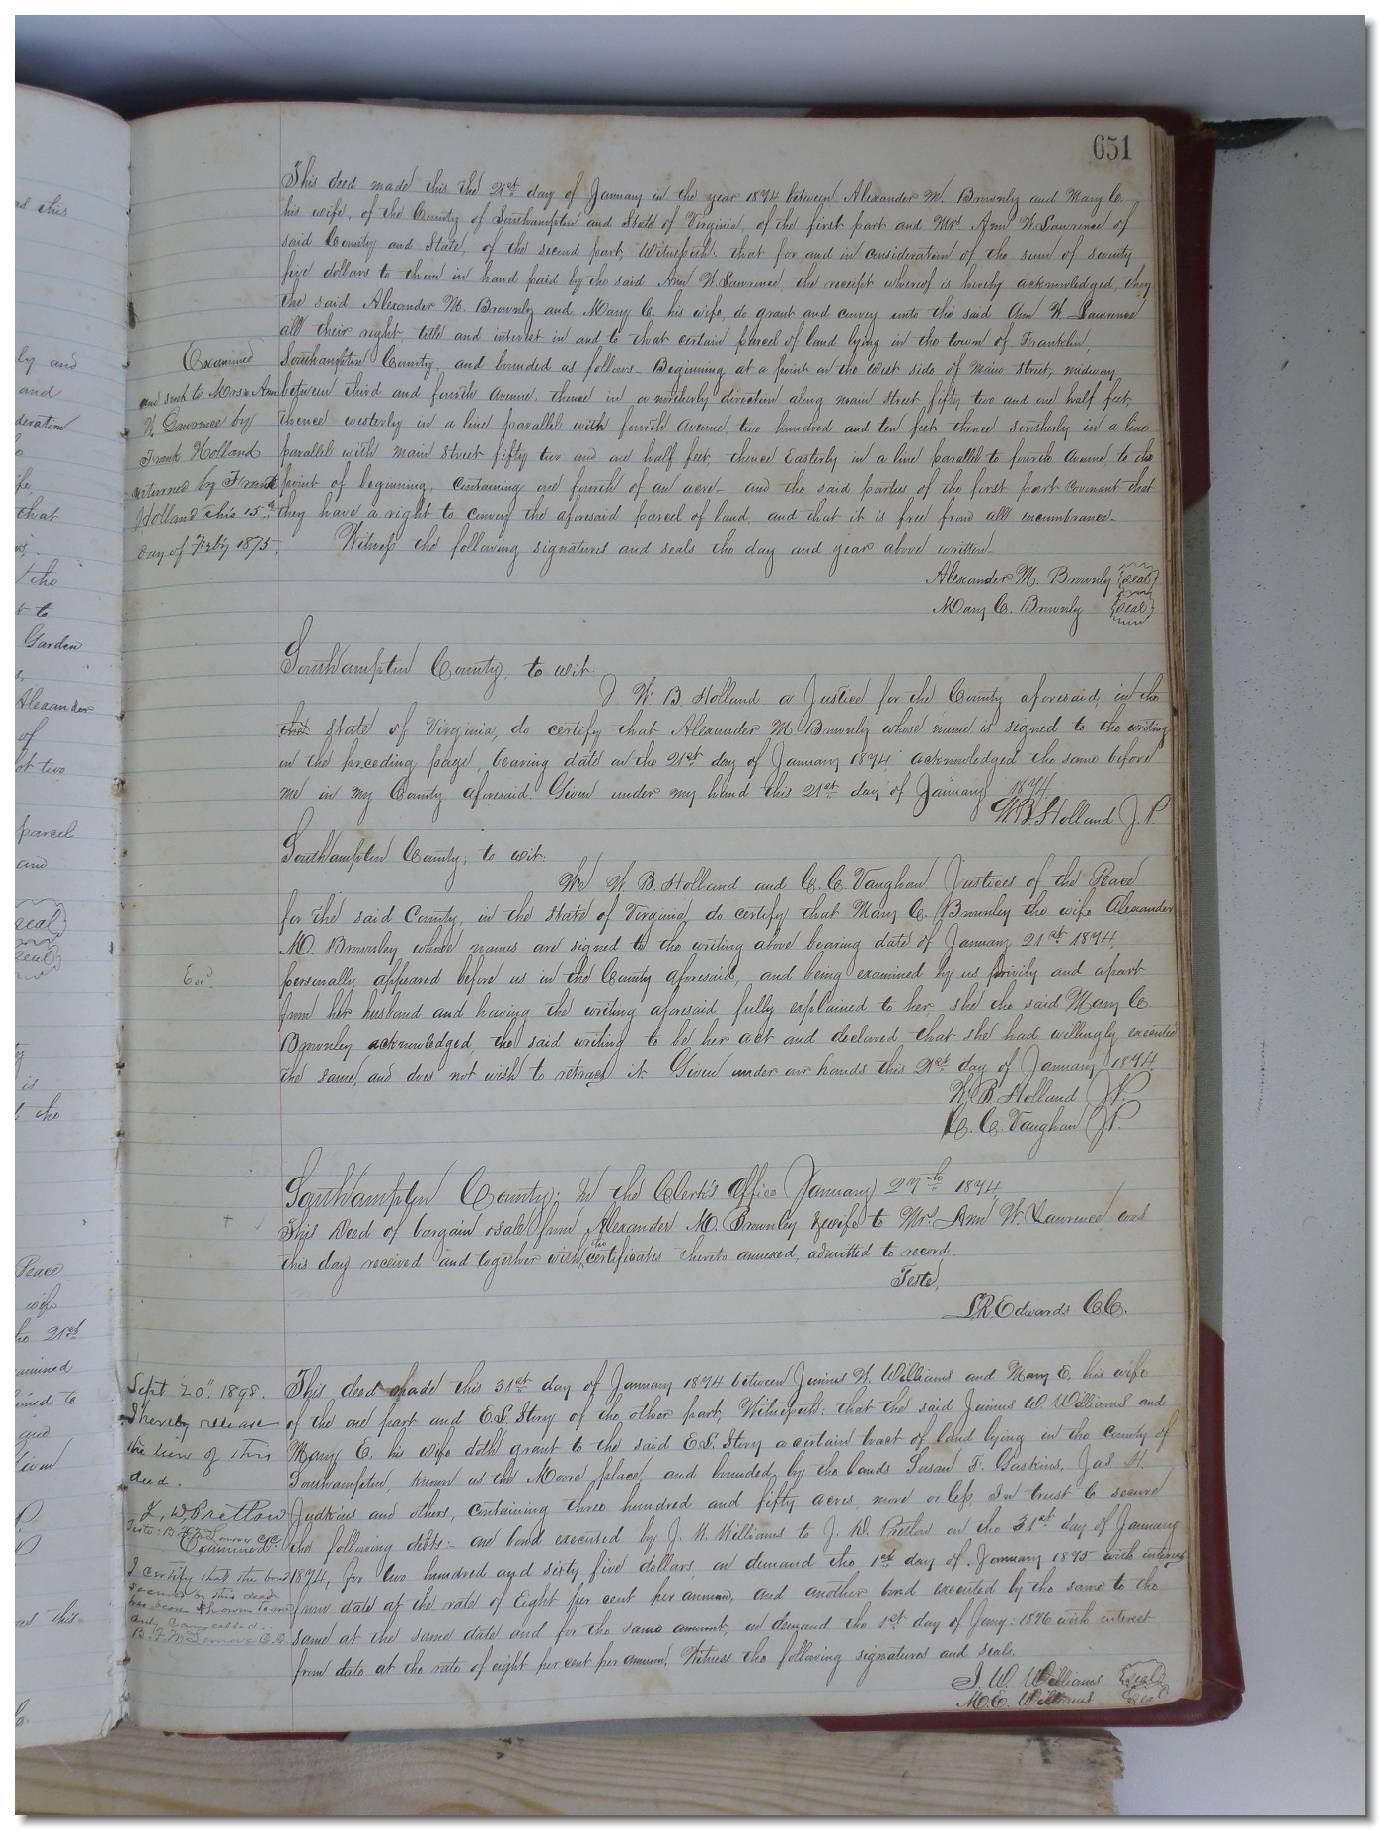 651
This deed made this the 21st day of January in the year 1874 between Alexander M. Brownly and Mary C.
his wife, of the County of Southampton and State of Virginia, of the first part and Mrs Ann W. Lawrence of
said County and State, of the second part, Witnesseth: that for and in consideration of the sum of seventy
five dollars to them in hand paid by the said Ann W. Lawrence, the receipt whereof is hereby acknowledged, they
the said Alexander M. Brownly and Mary C. his wife, do grant and convey unto the said Ann W. Lawrence
all their right, title and interest in and to that certain parcel of land lying in the town of Franklin,
Southampton County, and bounded as follows. Beginning at a point on the west side of Main Street, midway
between third and fourth Avenue. thence in a northerly direction along main street fifty two and one half feet,
thence westerly in a line parallel with fourth Avenue, two hundred and ten feet thence southerly in a line
parallel with main street fifty two and one half feet, thence Easterly in a line parallel to fourth Avenue to the
point of beginning, containing one fourth of an acre. and the said parties of the first part covenant that
they have a right to convey the aforesaid parcel of land, and that it is free from all incumbrance.
Witness the following signatures and seals the day and year above written.
Alexander M. Brownly {seal}
Mary C. Brownly {seal}
Examined
and sent to Mrs Ann
W. Lawrence by
Frank Holland
returned by Frank
Holland this 15th
day of Feby 1875.
Southampton County, to wit.
I W. B. Holland a Justice for the County aforesaid, in the
state of Virginia, do certify that Alexander M. Brownly whose name is signed to the writing
on the preceding page, bearing date on the 21st day of January 1874, acknowledged the same before
me in my County aforesaid. Given under my hand this 21st day of January 1874
W.B. Holland J.P.
Southampton County, to wit.
We W. B. Holland and C. C. Vaughan Justices of the Peace
for the said County, in the state of Virginia, do certify that Mary C. Brownley the wife Alexander
M. Brownley whose names are signed to the writing above bearing date of January 21st 1874,
personally appeared before us in the County aforesaid, and being examined by us privily and apart
from her husband and having the writing aforesaid fully explained to her, she the said Mary C.
Brownley acknowledged, the said writing to be her act and declared that she had willingly executed
the same, and does not wish to retract it. Given under our hands this 21st day of January 1874.
W. B. Holland J.P.
C. C. Vaughan J.P.
Exd
Southampton County: In the Clerk's Office January 27th 1874,
This Deed of bargain & sale from Alexander M. Brownley & wife to Mrs. Ann W. Lawrence was
this day received and together with the certificates thereto annexed, admitted to record.
Teste,
L.R. Edwards C.C.
This deed made this 31st day of January 1874 between Junius W. Williams and Mary E. his wife
of the one part and E.S. Story of the other part, Witnesseth: that the said Junius W. Williams and
Mary E. his wife doth grant to the said E.S. Story a certain tract of land lying in the county of
Southampton, known as the Moore place, and bounded by the lands Susan F. Gaskins, Jas. H.
Judkins and others, containing three hundred and fifty acres, more or less, In trust to secure
the following debts:- one bond executed by J. W. Williams to J. W. Pretlow on the 31st day of January
1874, for two hundred and sixty five dollars, on demand the 1st day of January 1875 with interest
from date at the rate of Eight per cent per annum, and another bond executed by the same to the
same at the same date and for the same amount, on demand the 1st day of Jany: 1876 with interest
from date at the rate of eight per cent per annum. Witness the following signatures and seals.
J. W. Williams {seal}
M. E. Williams {seal}
Sept 20" 1898.
I hereby release
the lien of this
deed.
J. W. Pretlow
Teste: B. F. McLemore CC.
Examined
I certify that the bond
secured by this deed
has been shown to me
and cancelled.
B. F. McLemore C.C.